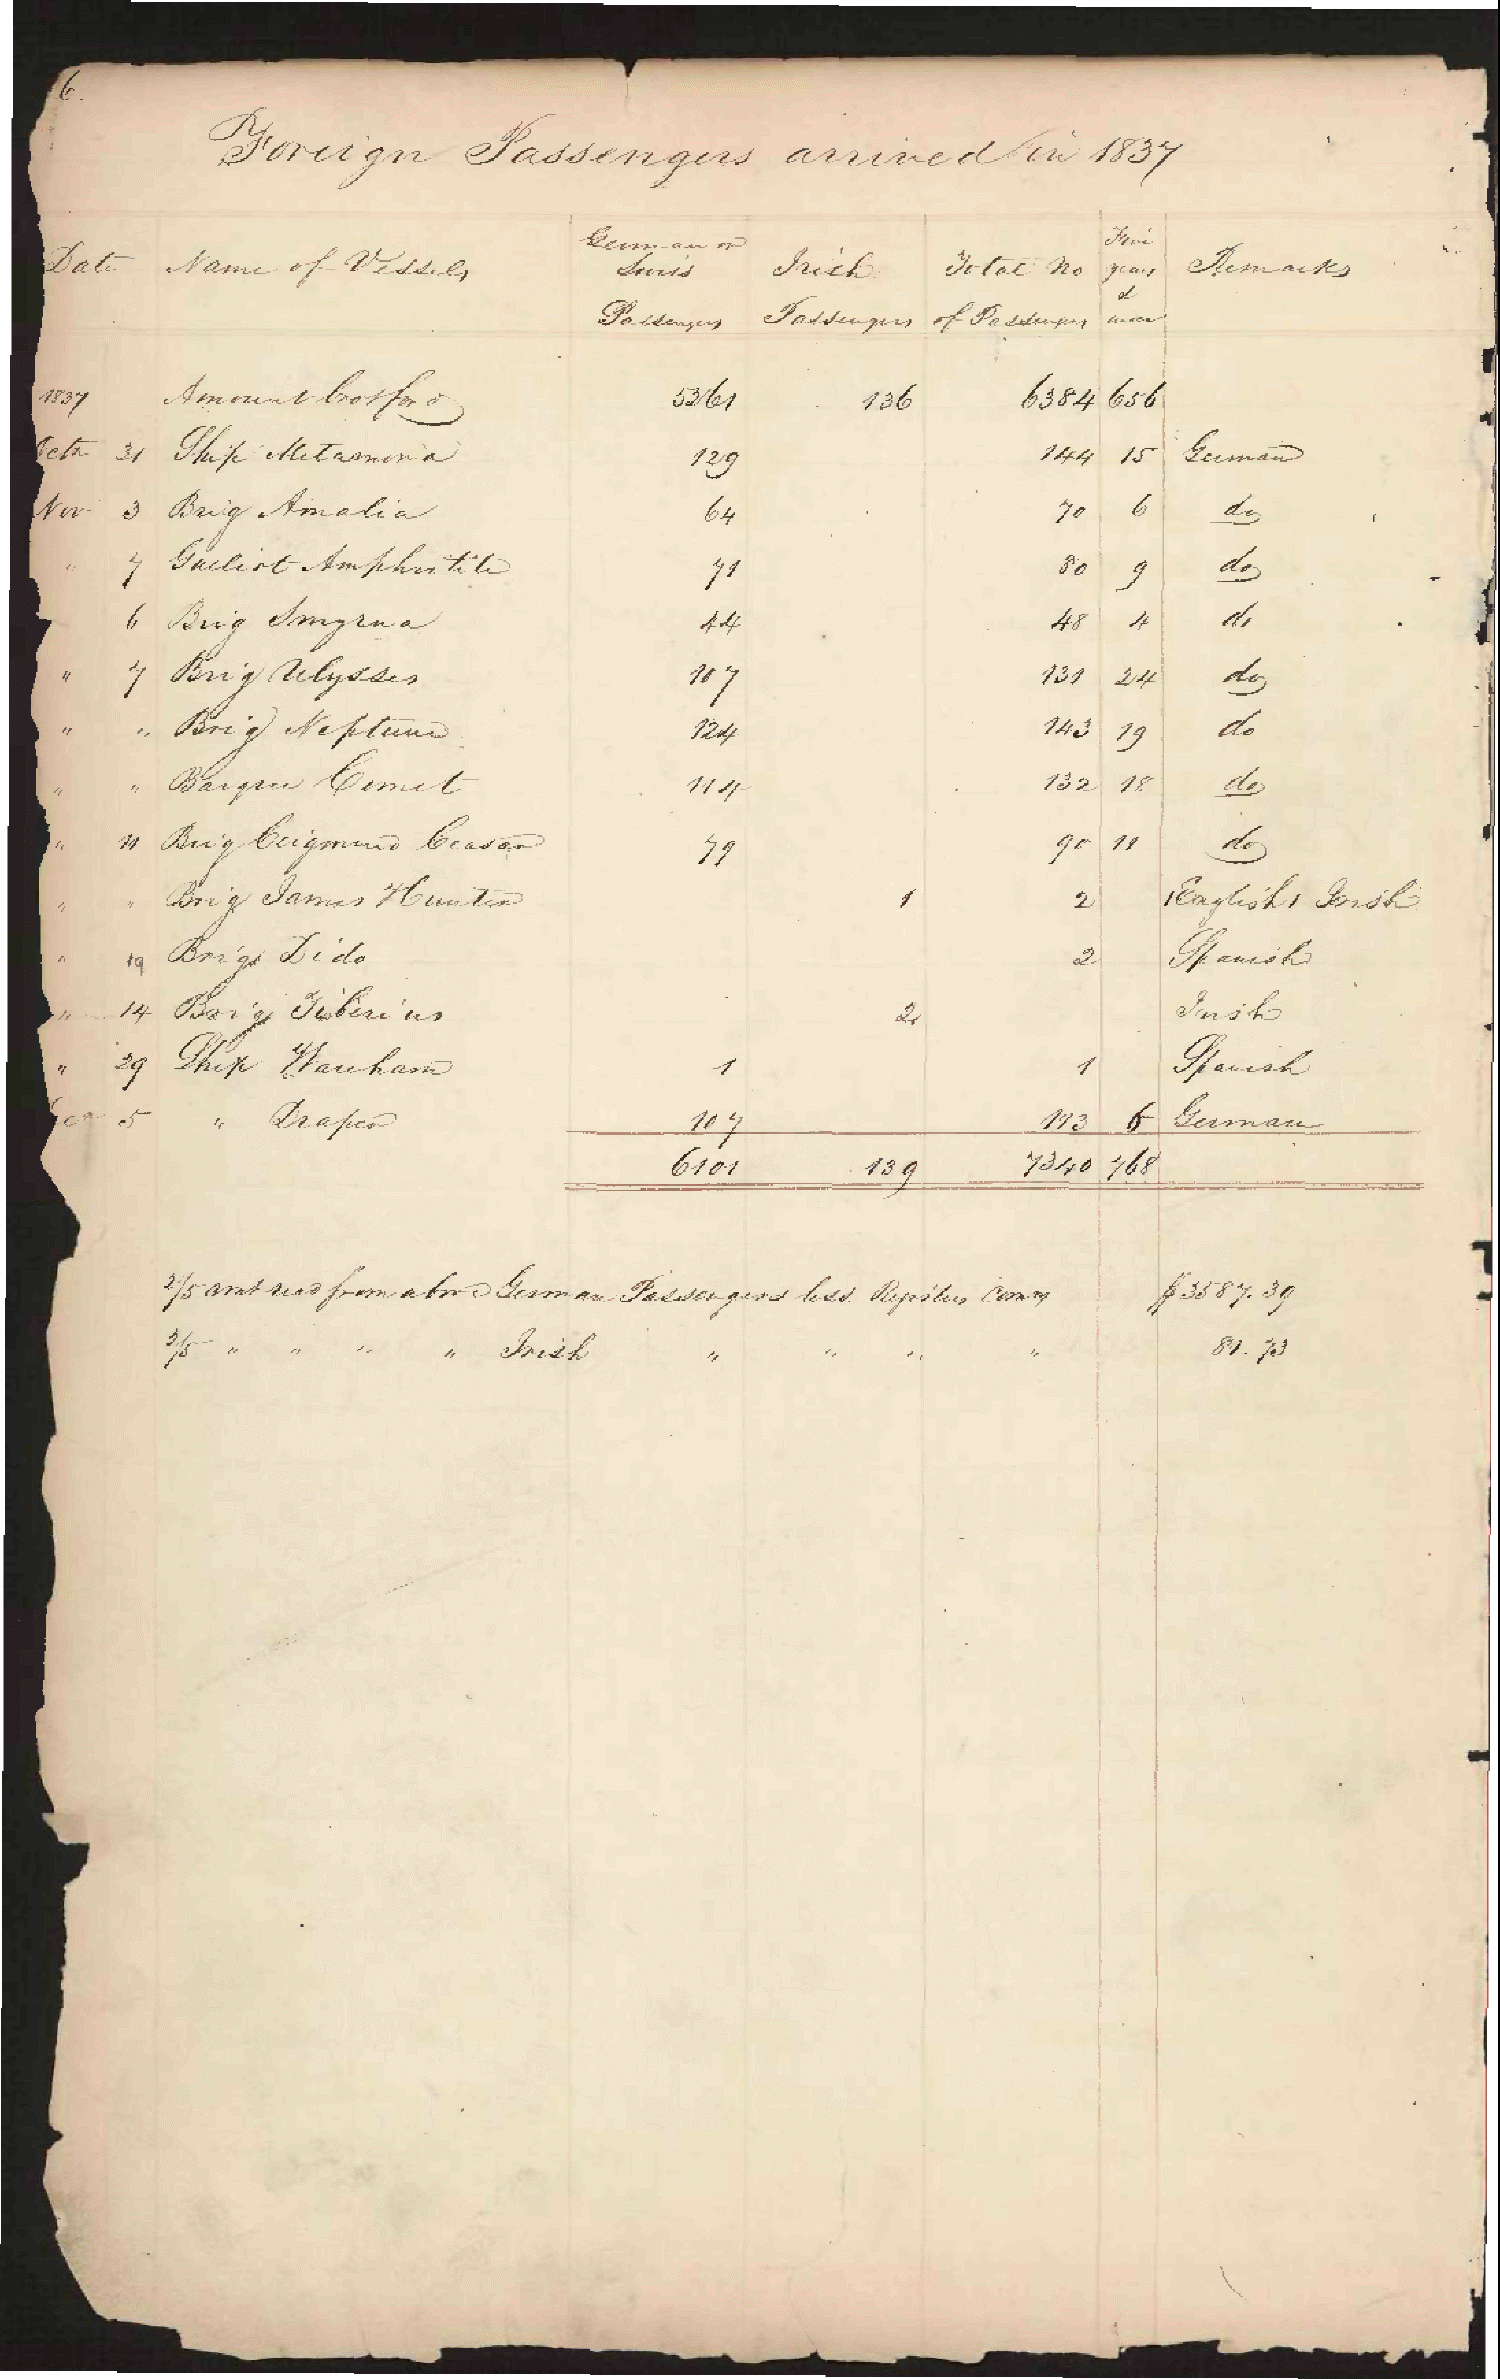 6.
Foreign Passengers arrived in 1837
Date Name of Vessels German or Swiss Passengers Irish Passengers Total No of Passengers Five years & under Remarks
1837 Amount Brot for d 5361 136 6384 656
Octr 31 Ship Metamora 129 144 15 German
Nov 3 Brig Amalia 64 70 6 do
" 7 Galliot Amphritite 71 80 9 do
6 Brig Smyrna 44 48 4 do
" 7 Brig Ulysses 107 131 24 do
" " Brig Neptune 124 143 19 do
" " Barque Comet 114 132 18 do
" 11 Brig 79 90 11 do
" " Brig James Hunter 1 2 1 English 1 Irish
" 19 Brig Dido 2 Spanish
" 14 Brig Tiberius 2 Irish
" 29 Ship Wareham 1 1 Spanish
5 " Draper 107 113 6 German
6101 139 7340 768
2/5 amt recd from above German Passengers less Comms $3587.39
3/5 " " " " Irish " " " " 81.73